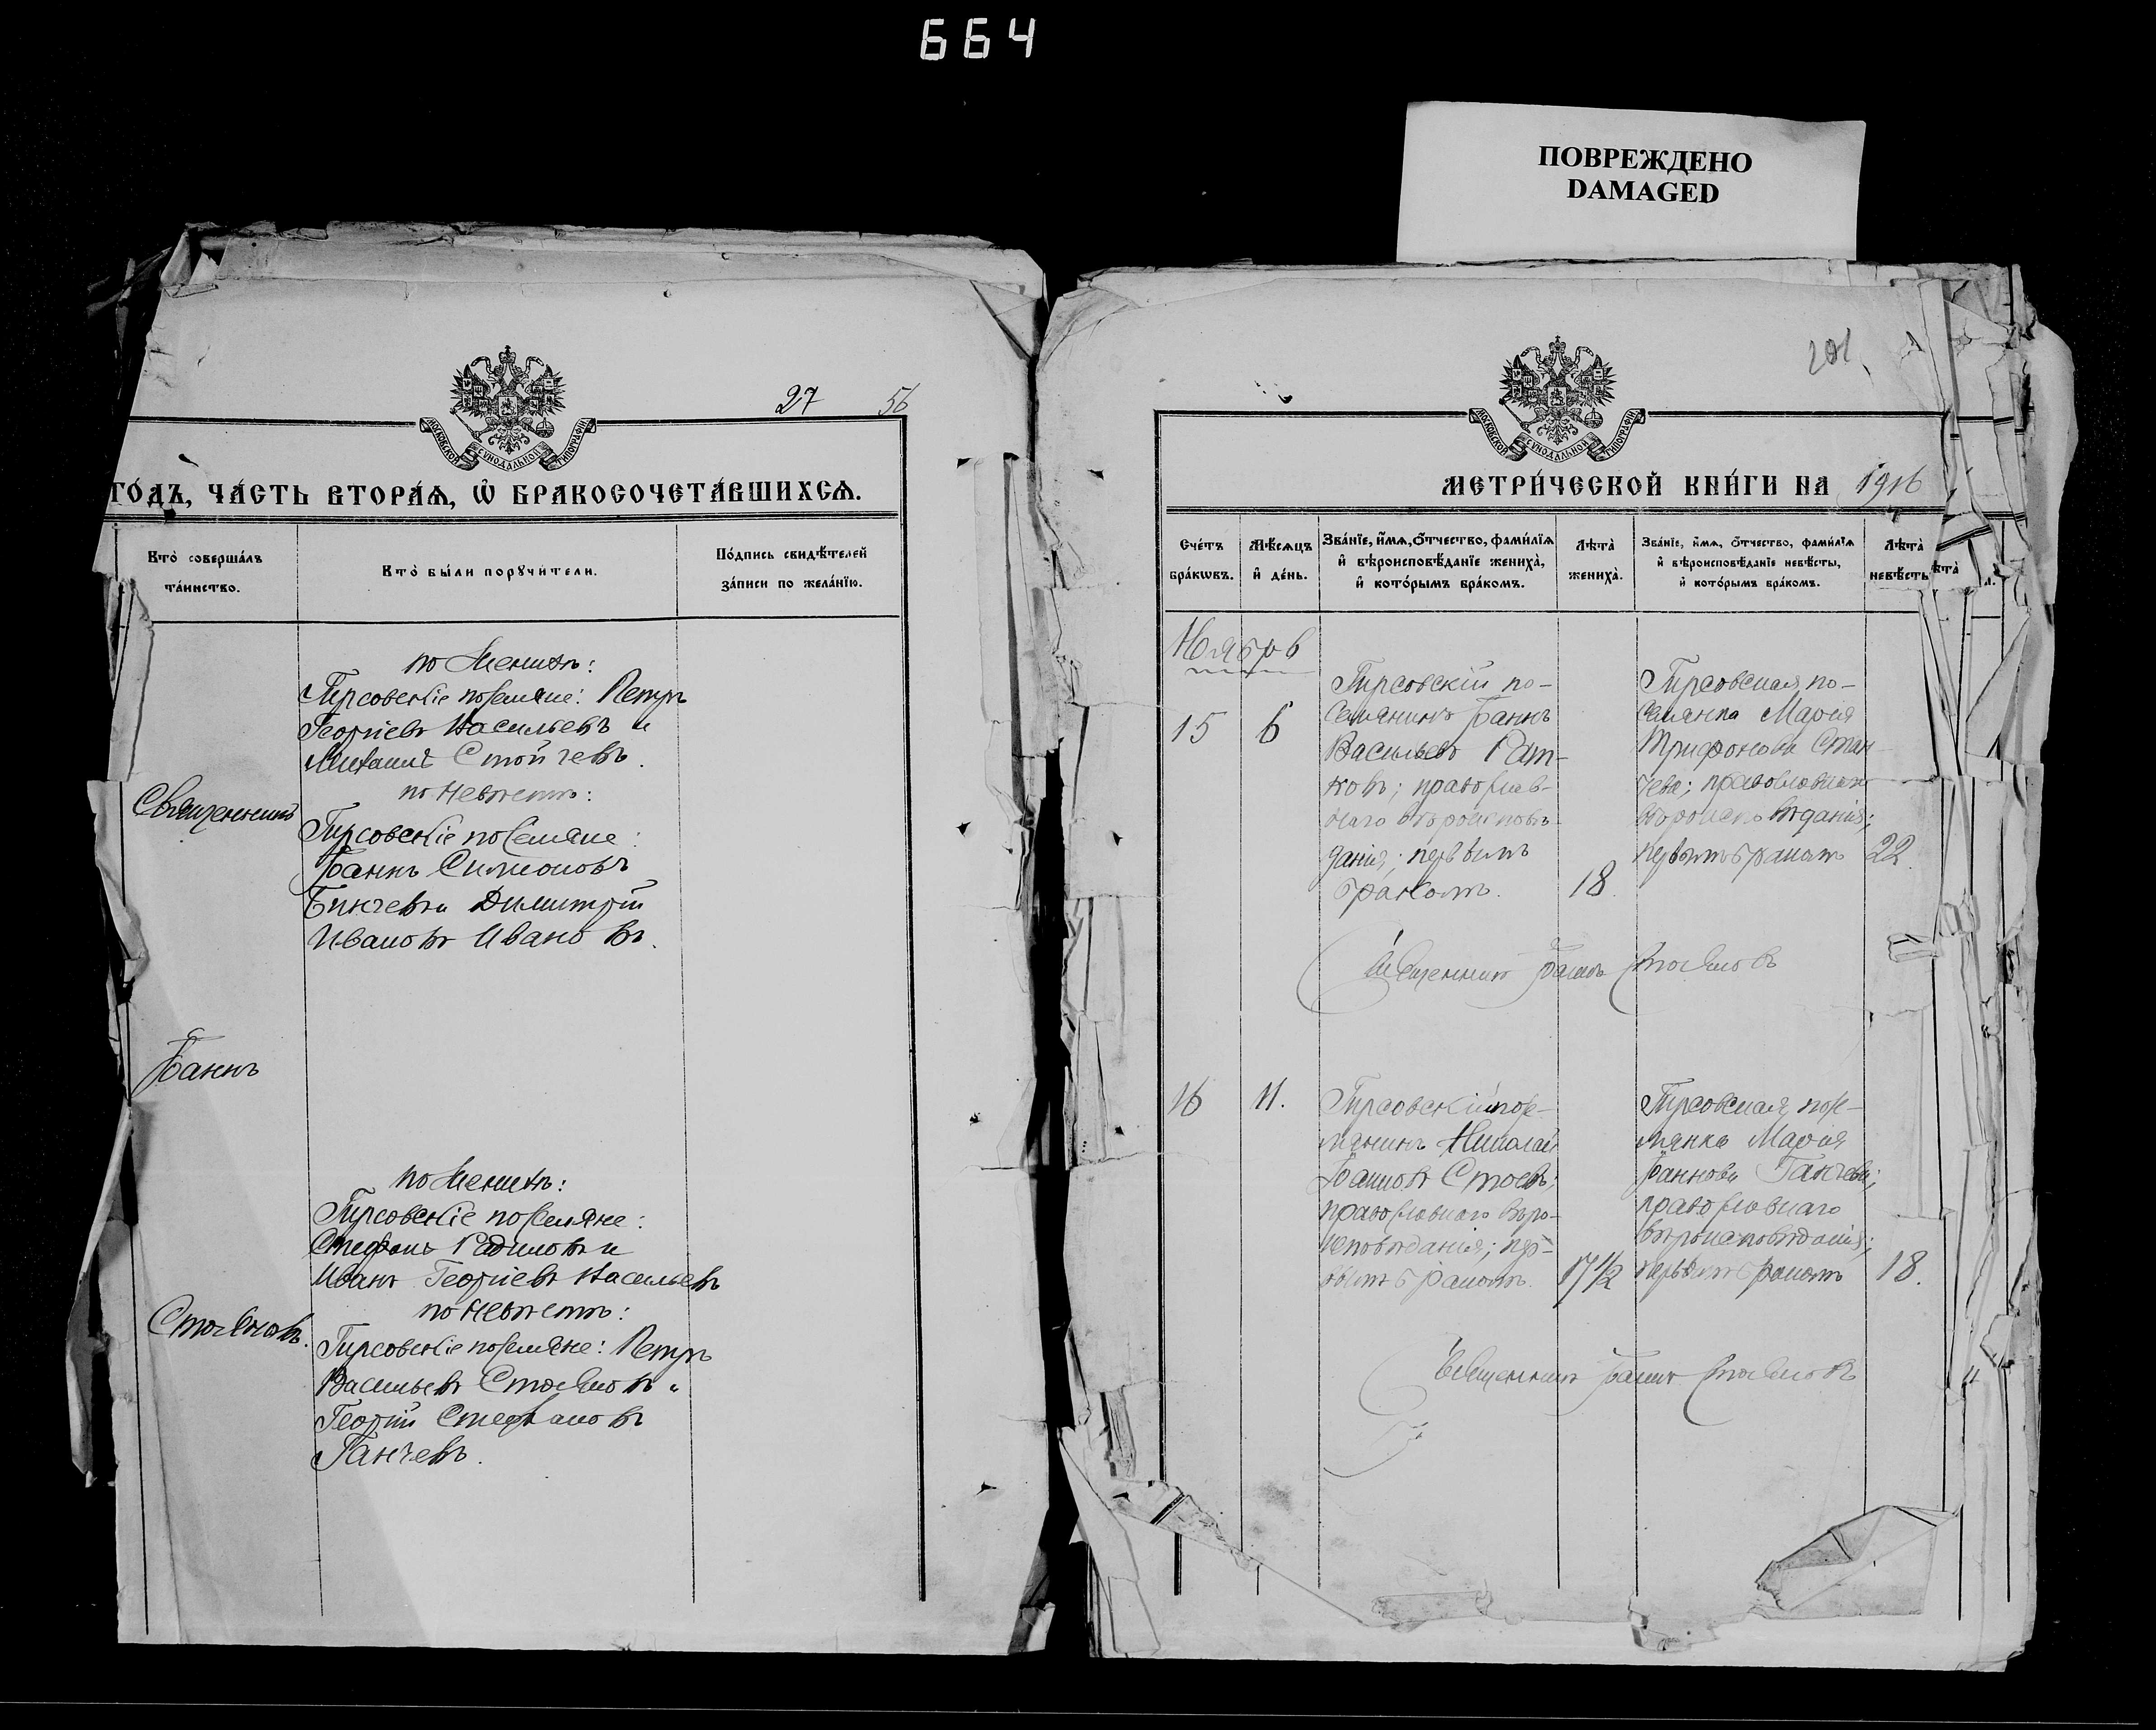 664
ПОВРЕЖДЕНО
DAMAGED
27 56
МОСКОВСКОЙ СѴНОДАЛЬНОЙ ТИПОГРАФІИ
ГО́ДЪ, ЧА́СТЬ ВТОРА́Ѧ, Ѡ҆ БРАКОСОЧЕТА́ВШИХСѦ.
Кто̀ соверша́лъ
та́инство.
Кто̀ бы́ли порꙋчи́тели.
По́дпись свидѣ́телей
за́писи по жела́нїю.
по Женихѣ:
Гирсовскіе поселяне: Петръ
Георгіевъ Васильевъ и
Михаилъ Стойчевъ.
по Невѣстѣ:
Священникъ
Гирсовскіе поселяне:
Іоаннъ Симеоновъ
Бинчевъ и Димитрій
Ивановъ Ивановъ.
Іоаннъ
по Женихѣ:
Гирсовскіе поселяне:
Стефанъ Радиловъ и
Иванъ Георгіевъ Васильевъ
по Невѣстѣ:
Стояновъ.
Гирсовскіе поселяне: Петръ
Васильевъ Стояновъ и
Георгій Стефановъ
Ганчевъ.
201
МОСКОВСКОЙ СѴНОДАЛЬНОЙ ТИПОГРАФІИ
МЕТРИ́ЧЕСКОЙ КНИ́ГИ НА 1916
Сче́тъ
бра́кѡвъ.
Мѣ́сѧцъ
и҆ де́нь.
Зва́нїе, и҆́мѧ, ѻ҆́тчество, фами́лїѧ
и҆ вѣроисповѣ́данїе жениха̀,
и҆ кото́рымъ бра́комъ.
Лѣ́та
жениха̀.
Зва́нїе, и҆́мѧ, ѻ҆́тчество, фами́лїѧ
и҆ вѣроисповѣ́данїе невѣ́сты,
и҆ кото́рымъ бра́комъ.
Лѣ́та
невѣ́сты
Ноябрь
15 6
Гирсовскій по-
селянинъ Іоаннъ
Васильевъ Рат-
ковъ; православ-
наго вѣроисповѣ-
данія; первымъ
бракомъ. 18.
Гирсовская по-
селянка Марія
Трифонова Стан-
чева; православнаго
вѣроисповѣданія;
первымъ бракомъ 22.
Священникъ Іоаннъ Стояновъ
16 11.
Гирсовскій посе-
лянинъ Николай
Іоанновъ Стоевъ;
православнаго вѣро-
исповѣданія; пер-
вымъ бракомъ. 17 1/2
Гирсовская посе-
лянка Марія
Іоаннова Ганчева;
православнаго
вѣроисповѣданія;
первымъ бракомъ 18.
Священникъ Іоаннъ Стояновъ